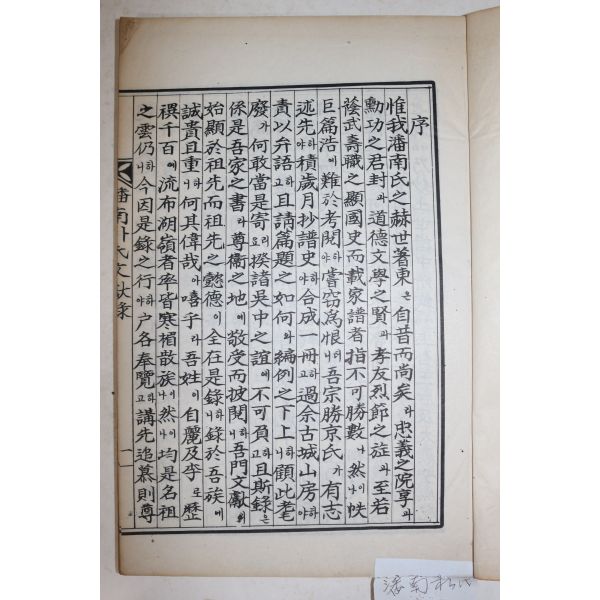 序
惟我潘南氏之赫世著東은自昔而尚矣라忠義之院享과
勳功之君封과道德文學之賢과孝友烈節之旌과至若
蔭武壽職之顯國史而載家譜者指不可勝數나然이나帙
巨篇浩에難於考閱하야嘗窃爲恨이러니吾宗勝京氏가有志
述先하야積歲月抄譜史하야合成一冊하고過余古城山房하야
責以弁語하고且請篇題之如何와編例之下上하니顧此耄
廢가何敢當是寄리요揆諸吳中之誼에不可負이고且斯錄은
係是吾家之書라尊衞之地에敬受而披閱하니吾門文獻의
始顯於祖先而祖先之懿德이全在是錄하니錄於吾族에
誠貴且重하니何其偉哉아嘻乎라吾姓이自麗及李로歷
禩千百에流布湖嶺者率皆寒楣散族이나然이나均是名祖
之雲仍이니今因是錄之行하야户各奉覽하고講先追慕則尊
潘南朴氏文獻錄
一
潘南朴氏